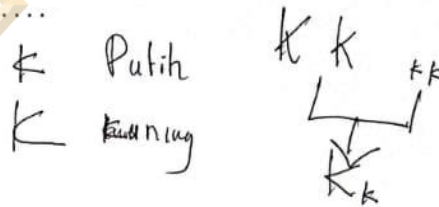 .....
k Putih
K kuning
K K
kk
Kk